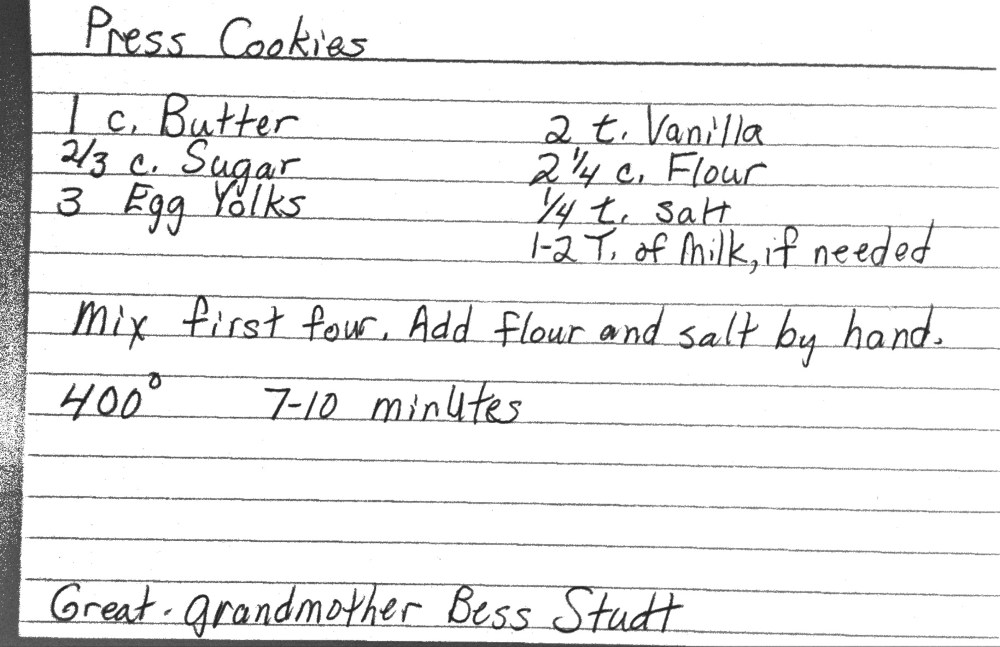 Press Cookies
1 c. Butter
2/3 c. Sugar
3 Egg Yolks
2 t. Vanilla
2 1/4 c. Flour
1/4 t. salt
1-2 T. of Milk, if needed
Mix first four. Add flour and salt by hand.
400° 7-10 minutes
Great-grandmother Bess Studt